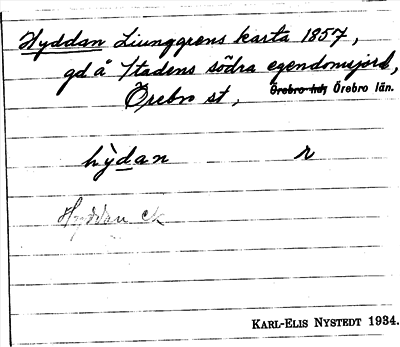 Hyddan Ljunggrens karta 1857,
gd å Stadens södra egendomsjord,
Örebro st, Örebro hd, Örebro län.
hỳdan r
Hyddan ck
KARL-ELIS NYSTEDT 1934.